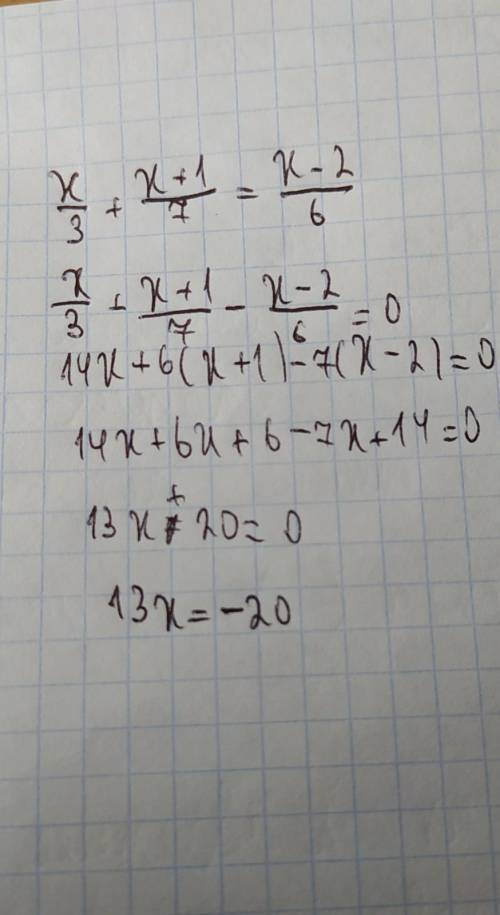 x/3 + x+1/7 = x-2/6
x/3 + x+1/7 - x-2/6 = 0
14x+6(x+1)-7(x-2)=0
14x+6x+6-7x+14=0
13x+20=0
13x=-20